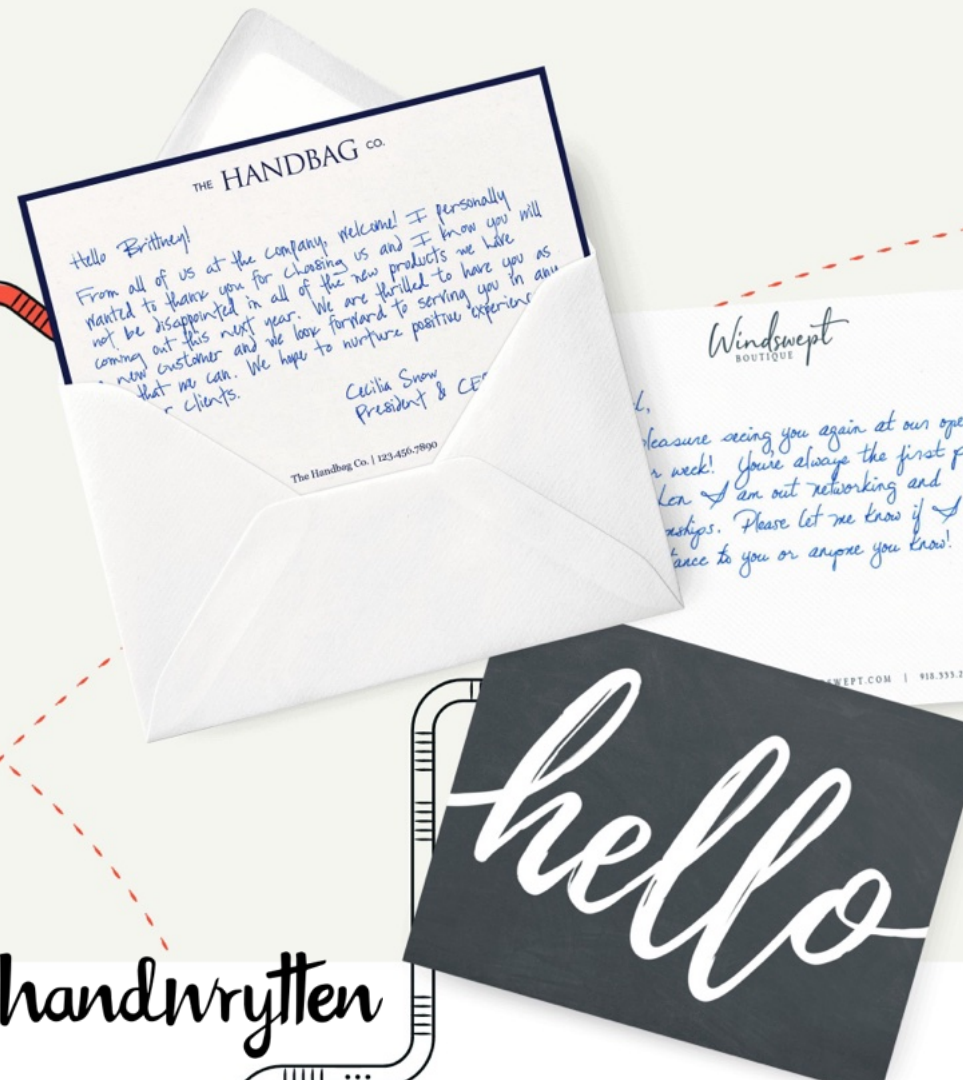 THE HANDBAG CO.
Hello Brittney!
From all of us at the company, welcome! I personally
wanted to thank you for choosing us and I know you will
not be disappointed in all of the new products we have
coming out this next year. We are thrilled to have you as
new customer and we look forward to serving you in any
that we can. We hope to nurture positive
clients.
Cecilia Snow
President &
The Handbag Co. | 123.456.7890
Windswept
BOUTIQUE
pleasure seeing you again at our
week! You're always the first
I am out networking and
Please let me know if I
to you or anyone you know!
.COM | 918.555.2
hello
handwrytten